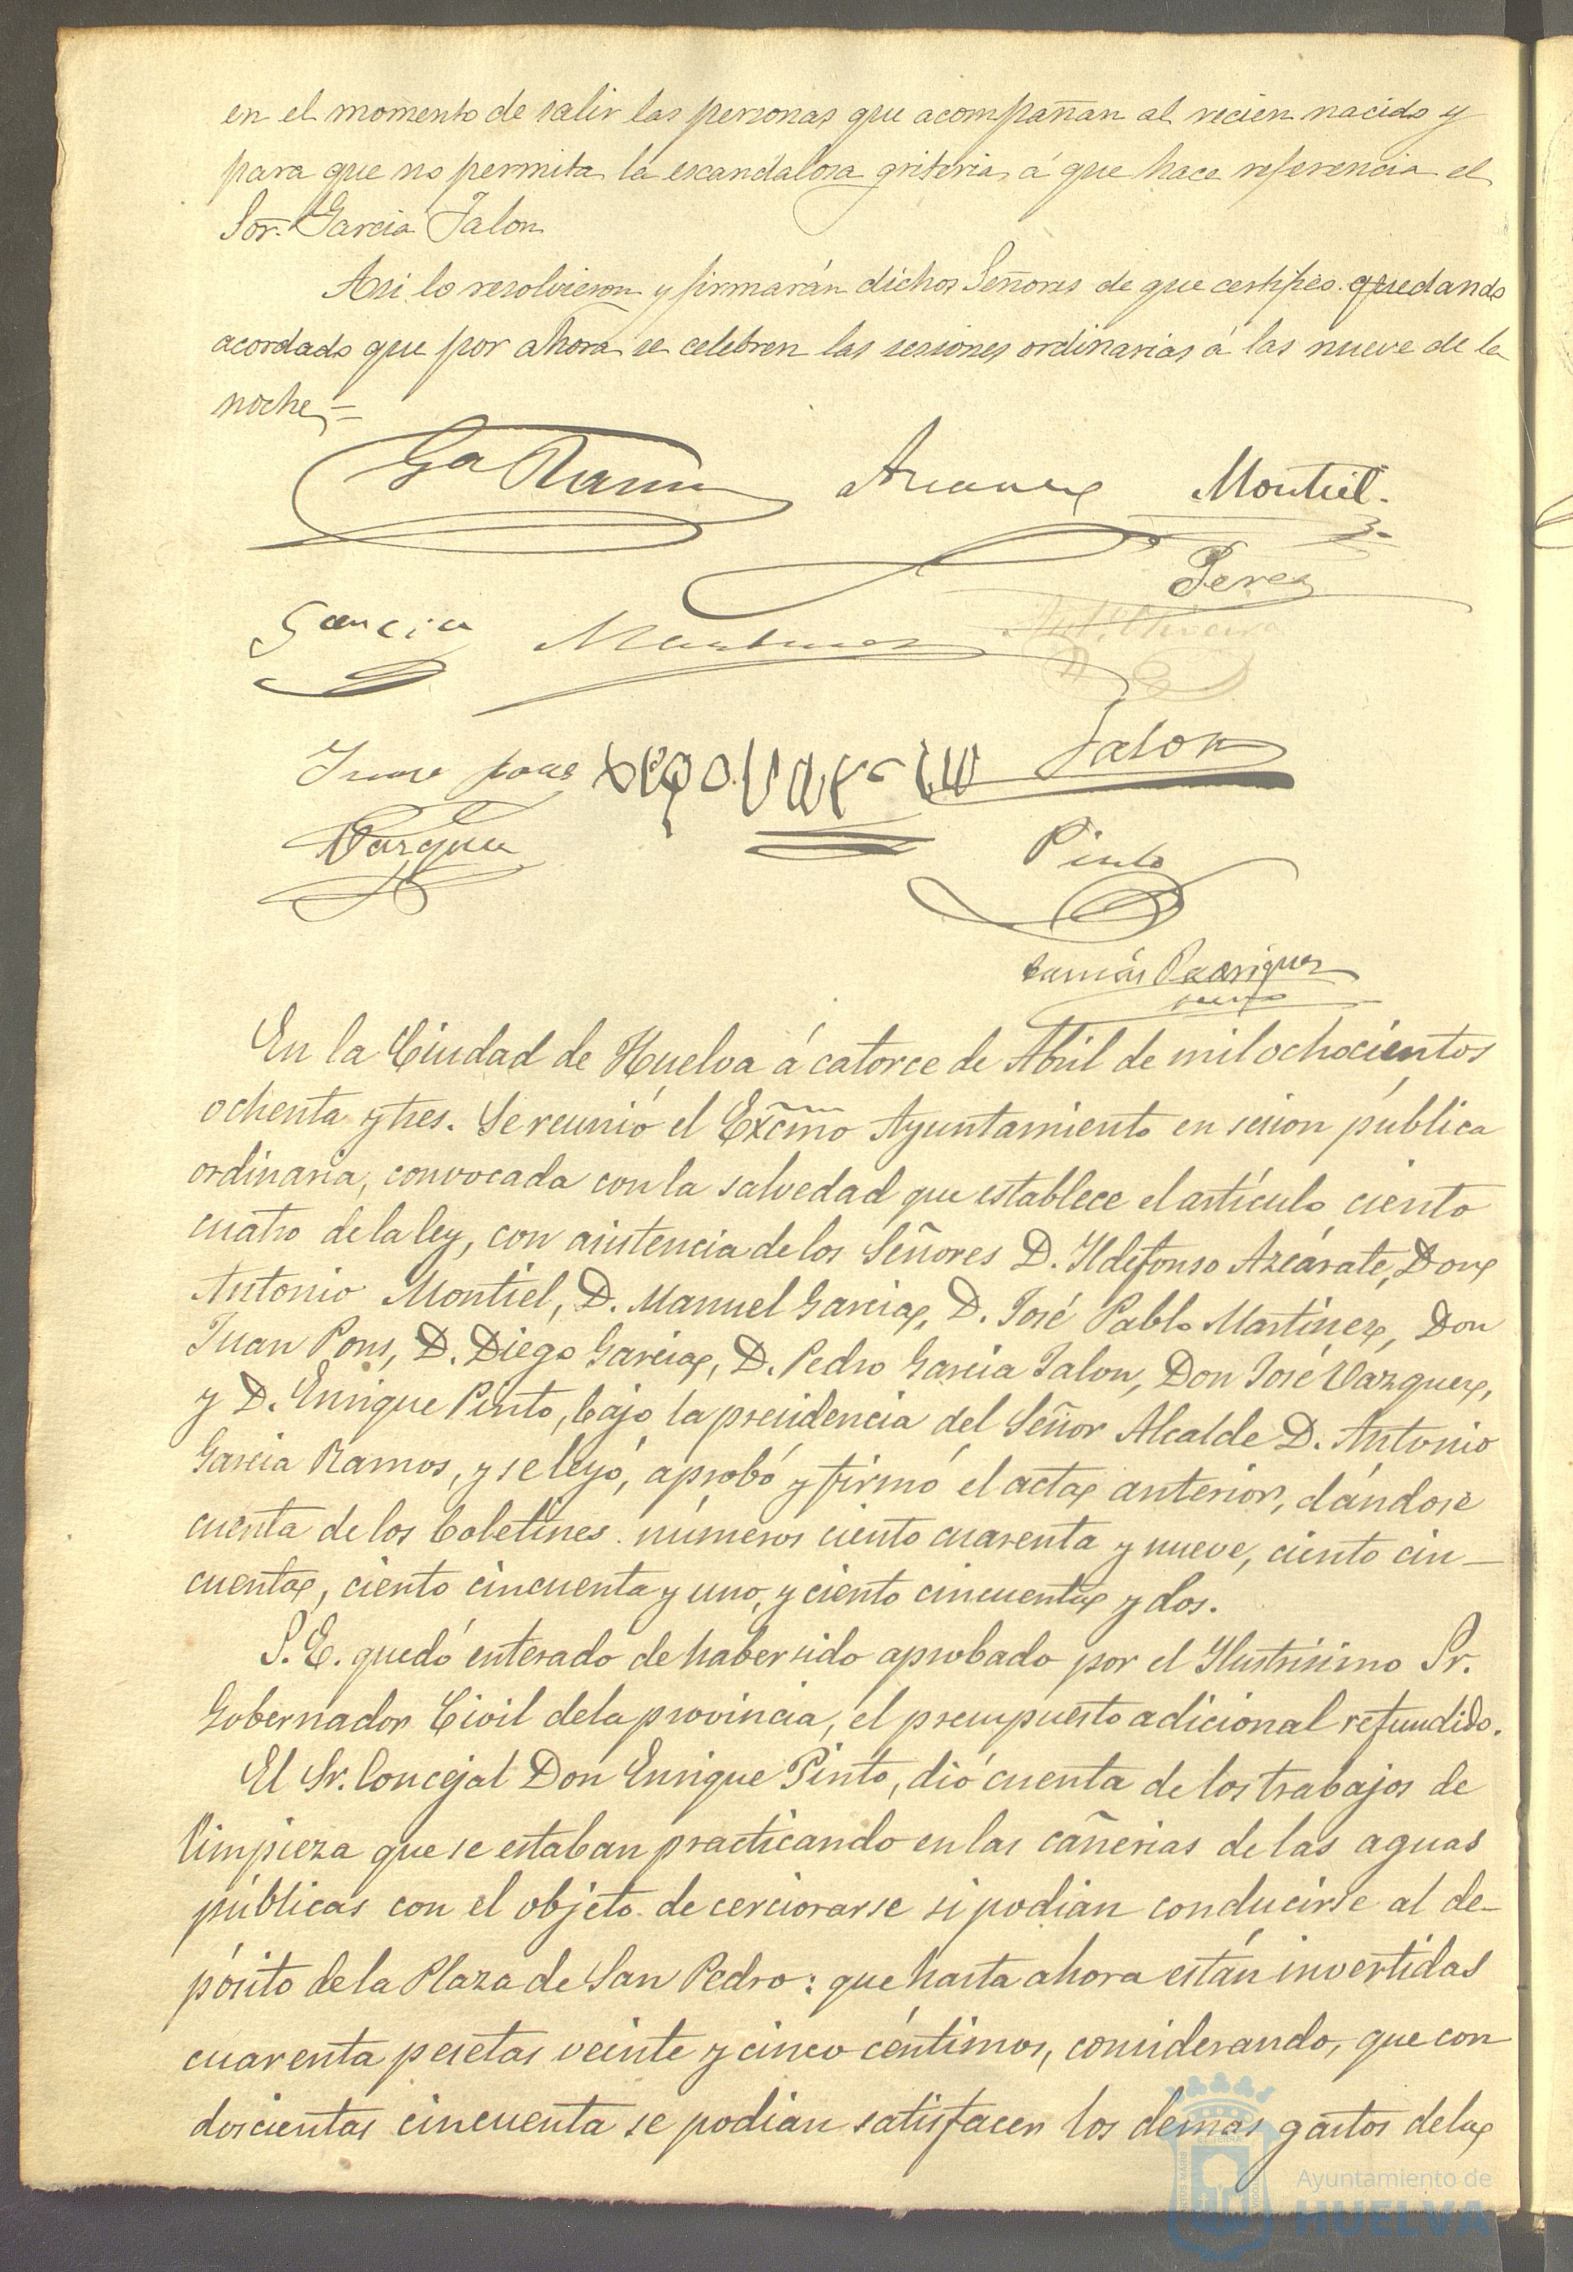 en el momento de salir las personas que acompañan al recien nacido y
para que no permita la escandalosa griteria á que hace referencia el
Sor. Garcia Jalon
Asi lo resolvieron y firmarán dichos Señores de que certifico. quedando
acordado que por ahora se celebren las sesiones ordinarias á las nueve de la
noche,=
Ga Ramos Azcarate Montiel.
Perez
Garcia Martinez
Juan pons Diego Garcia Jalon
Vazquez
Pinto
Rodriguez
En la Ciudad de Huelva á catorce de Abril de mil ochocientos
ochenta y tres. Se reunió el Excmo Ayuntamiento en sesion pública
ordinaria, convocada con la salvedad que establece el artículo ciento
cuatro de la ley, con asistencia de los Señores D. Ildefonso Azcárate, Don
Antonio Montiel, D. Manuel Garcia, D. José Pablo Martínez, Don
Juan Pons, D. Diego Garcia, D. Pedro Garcia Jalon, Don José Vazquez,
y D. Enrique Pinto, bajo la presidencia del Señor Alcalde D. Antonio
Garcia Ramos, y se leyó, aprobó y firmó el acta anterior, dándose
cuenta de los boletines números ciento cuarenta y nueve, ciento cin-
cuenta, ciento cincuenta y uno, y ciento cincuenta y dos.
S.E. quedó enterado de haber sido aprobado por el Ilustrísimo Sr.
Gobernador Civil de la provincia, el presupuesto adicional refundido.
El Sr. Concejal Don Enrique Pinto, dió cuenta de los trabajos de
limpieza que se estaban practicando en las cañerias de las aguas
públicas con el objeto de cerciorarse si podian conducirse al de-
pósito de la Plaza de San Pedro: que hasta ahora están invertidas
cuarenta pesetas veinte y cinco céntimos, considerando, que con
doscientas cincuenta se podian satisfacer los demas gastos de la
Ayuntamiento de
HUELVA